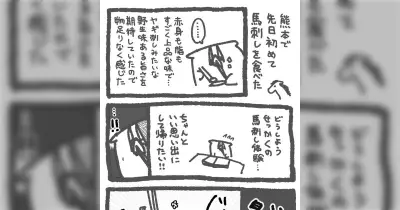 熊本で
先日初めて
馬刺しを食べた
………
赤身も脂も
すごく上品な味で…
ヤギ刺しみたいな
野生味ある旨さを
期待していたので
物足りなく感じた
どうしよう
せっかくの
馬刺し体験…
ちゃんと
いい思い出に
して帰りたい!!
…!!